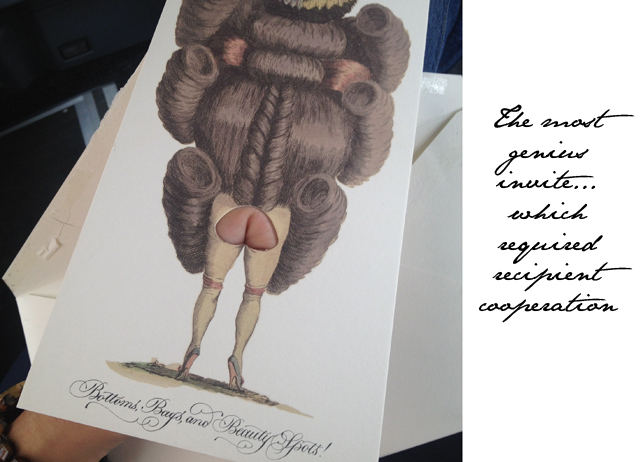 Bottoms, Bags, and Beauty Spots!
The most
genius
invite...
which
required
recipient
cooperation